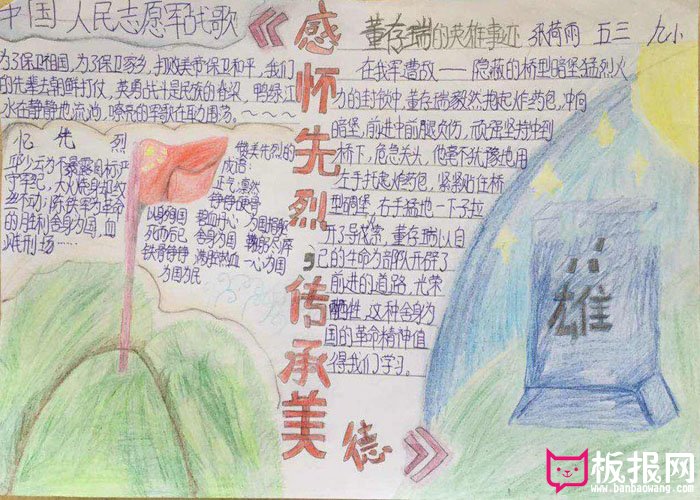 中国人民志愿军战歌
为了保卫祖国,为了保卫家乡,打败美帝保卫和平,我们
的先辈去朝鲜打仗,英勇战斗是民族的脊梁,鸭绿江
水在静静地流淌,嘹亮的军歌在耳边回荡~~~
忆先烈
邱少云为不暴露目标严
守军纪,大火烧身却纹
丝不动;陈铁军为革命
的胜利舍身为国,血
洒刑场……
赞美先烈的
成语:
正气凛然
铮铮硬骨
以身为国
碧血丹心
为国捐躯
死而后已
舍身为国
鞠躬尽瘁
铁骨铮铮
满腔热血
一心为国
为国为民
《感怀先烈,传承美德》
董存瑞的英雄事迹 张荷雨 五三 九小
在我军遭敌——隐蔽的桥型暗堡猛烈火
力的封锁中,董存瑞毅然抱起炸药包,冲向
暗堡,前进中前腿负伤,顽强坚持冲到
桥下,危急关头,他毫不犹豫地用
左手托起炸药包,紧紧贴住桥
型碉堡,右手猛地一下子拉
开了导火索,董存瑞以自
己的生命为部队开辟了
前进的道路,光荣
牺牲,这种舍身为
国的革命精神值
得我们学习。
英雄
板报网
www.banbaowang.com